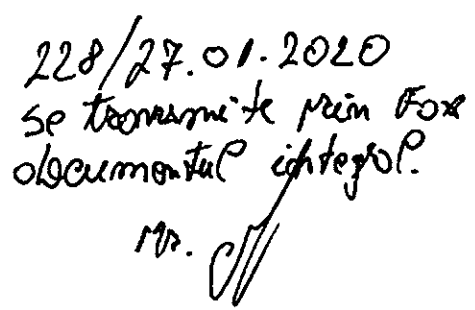 228/27.01.2020
se transmite prin Fox
documentul integral.